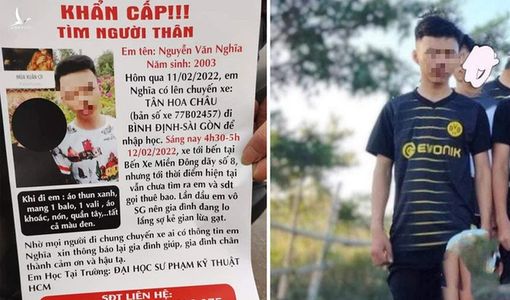 KHẨN CẤP!!!
TÌM NGƯỜI THÂN
MÙA XUÂN CỜ
Em tên: Nguyễn Văn Nghĩa
Năm sinh: 2003
Hôm qua 11/02/2022, em
Nghĩa có lên chuyến xe:
TÂN HOA CHÂU
(bản số xe 77B02457) đi
BÌNH ĐỊNH-SÀI GÒN để
nhập học. Sáng nay 4h30-5h
12/02/2022, xe tới bến tại
Bến Xe Miền Đông dãy số 8,
nhưng tới thời điểm hiện tại
vẫn chưa tìm ra em và sdt
gọi thuê bao. Lần đầu em vô
SG nên gia đình đang lo
lắng sợ kẻ gian lừa gạt.
Khi đi em : áo thun xanh,
mang 1 balo, 1 vali , áo
khoác, nón, quần tây,..tất
cả màu đen.
Nhờ mọi người đi chung chuyến xe ai có thông tin em
Nghĩa xin thông báo lại gia đình giúp, gia đình chân
thành cảm ơn và hậu tạ.
Em Học Tại Trường: ĐẠI HỌC SƯ PHẠM KỸ THUẬT
HCM
SĐT LIÊN HỆ:
BVB
09
EVONIK